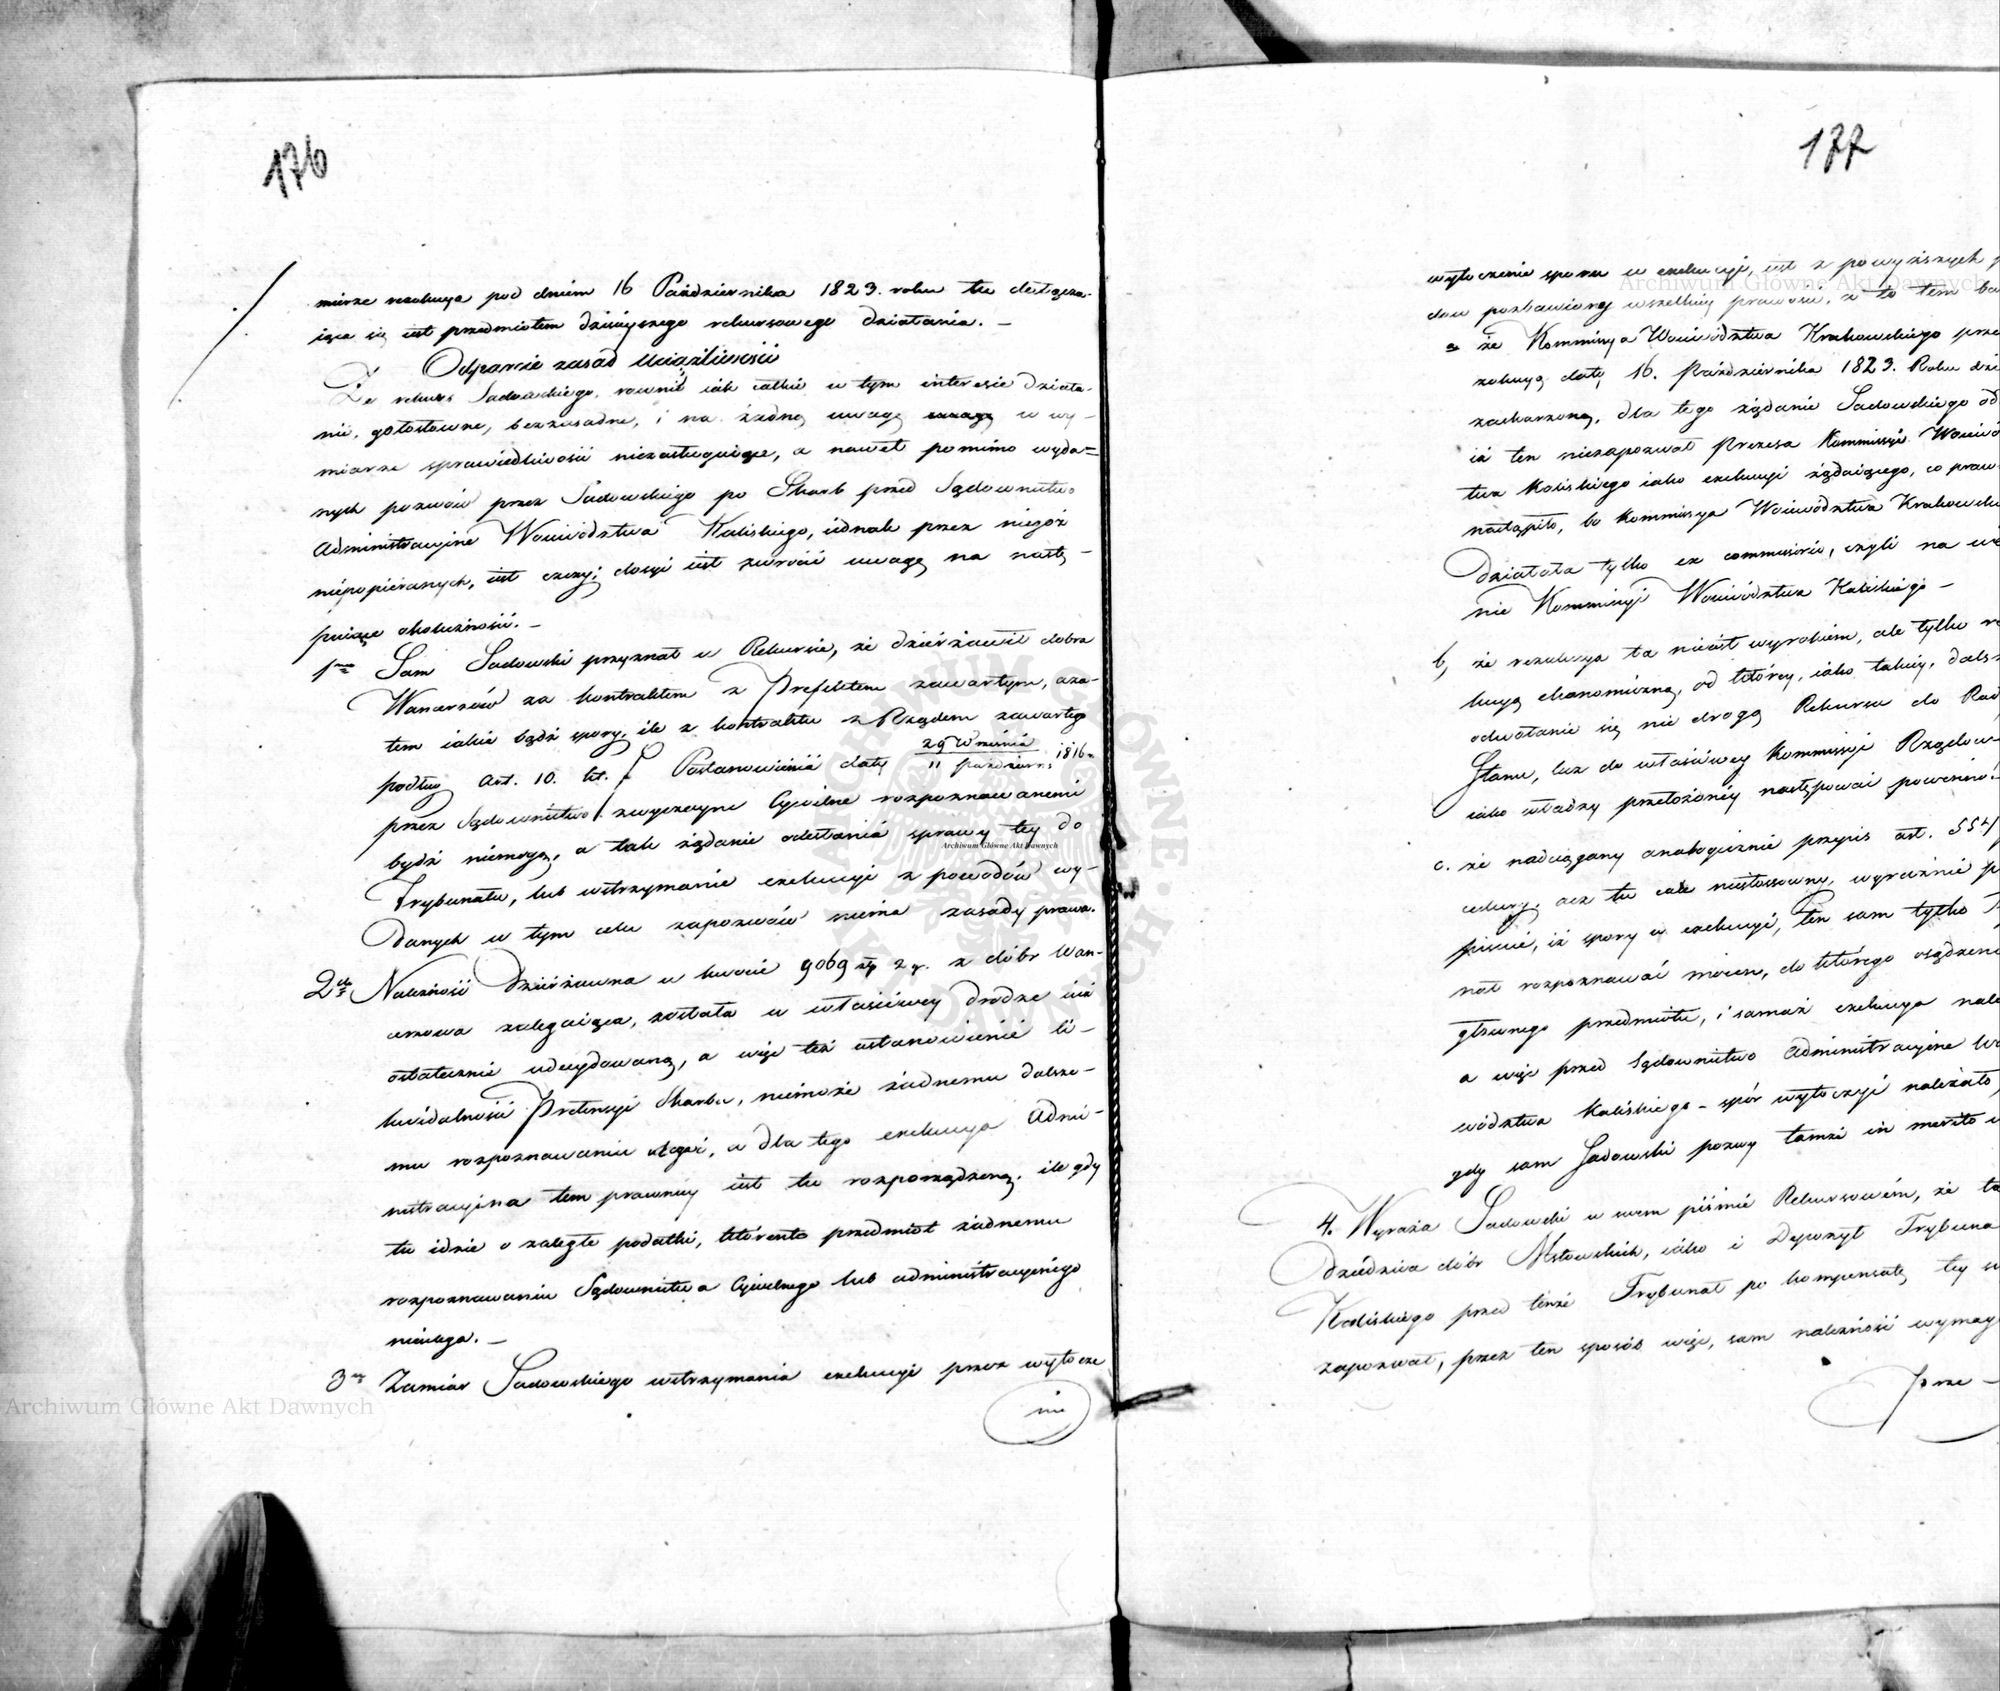 176
mierze rezolucya pod dniem 16 Października 1823. roku tu dołącza-
iąca się iest przedmiotem dzisieyszego rekursowego działania. —
Odparcie zasad uciążliwości
Że rekurs Sadowskiego, rownie iak całkie w tym interesie działa-
nie, gołosłowne, bezzasadne, i na żadną uwagę w wy-
miarze sprawiedliwości niezasługuiące, a nawet pomimo wyda=
nych pozwów przez Sadowskiego po Skarb przed Sądownictwo
Administracyine Woiewództwa Kaliskiego, iednak przez niegoż
niepopieranych, iest czczy; dosyć iest zwrócić uwagę na nastę-
puiące okoliczności. —
1mo Sam Sadowski przyznał w Rekursie, że dzierżawił dobra
Wancerzów za kontraktem z Prefektem zawartym, aza-
tem iakie bądź spory, ile z kontraktu z Rządem zawartego
podług Art. 10. lit. f Postanowienia daty 29 Września / 11 Paździer. 1816 r.
przez Sądownictwo zwyczayne Cywilne rozpoznawanemi
bydź niemogą, a tak żądanie odesłania sprawy tey do
Trybunału, lub wstrzymanie exekucyi z powodów wy-
danych w tym celu zapozwów niema zasady prawa.
2do Należność dzierżawna w kwocie 9069 zł 2 gr. z dóbr Wan-
cerzowa zalegaiąca, została w właściwey drodze iuż
ostatecznie udecydowaną, a więc też ustanowienie li-
kwidalności Pretensyi Skarbu, niemoże żadnemu dalsze-
mu rozpoznawaniu uledz, a dla tego exekucya Admi-
nistracyina tem prawniey iest tu rozporządzoną, ile gdy
tu idzie o zaległe podatki, którento przedmiot żadnemu
rozpoznawaniu Sądownictwa Cywilnego lub administracyinego
nieulega. —
3tio Zamiar Sadowskiego wstrzymania exekucyi przez wytocze
nie
177
wytoczenie sporu w exekucyi, iest z powyższych
dow pozbawioney wszelkiey prawom, a to tem
a że Kommissya Woiewództwa Krakowskiego prze
zolucyą daty 16. Października 1823. Roku
zaskarzoną, dla tego żądanie Sadowskiego od
iż ten niezapozwał Prezesa Kommissyi Woiewó
twa Kaliskiego iako exekucyi żądaiącego, co praw
nastąpiło, bo Kommissya Woiewództwa Krakowski
Działała tylko ex commissorio, czyli na we
nie Kommissyi Woiewództwa Kaliskiego —
b, że rezolucya ta nieiest wyrokiem, ale tylko re
lucyą ekonomiczną, od którey, iako takiey, dals
odwołanie się nie drogą Rekursu do Rad
Stanu, lecz do właściwey Kommissyi Rządow
iako władzy przełożoney następować powinno.
c. że naciągany analogicznie przepis art. 554
cedury, acz tu cale niestosowny, wyraźnie p
piecie, iż spory w exekucyi, ten sam tylko T
nał rozpoznawać mocen, do którego osądzeni
głównego przedmiotu, i samaż exekucya nale
a więc przed Sądownictwo Administracyine Wo
wództwa Kaliskiego — spór wytoczyć należało,
gdy sam Sadowski pozwy tamże in merito
4. Wyraża Sadowski w swem piśmie Rekursowém, że ta
Dziedzica dóbr Mstowskich, iako i Depozyt Trybuna
Kaliskiego przed tenże Trybunał po kompensatę tey
zapozwał, przez ten sposób więc, sam należność wymag
prze —
Archiwum Główne Akt Dawnych
Archiwum Główne Akt Dawnych
Archiwum Główne Akt Dawnych
ARCHIWUM GŁÓWNE AKT DAWNYCH